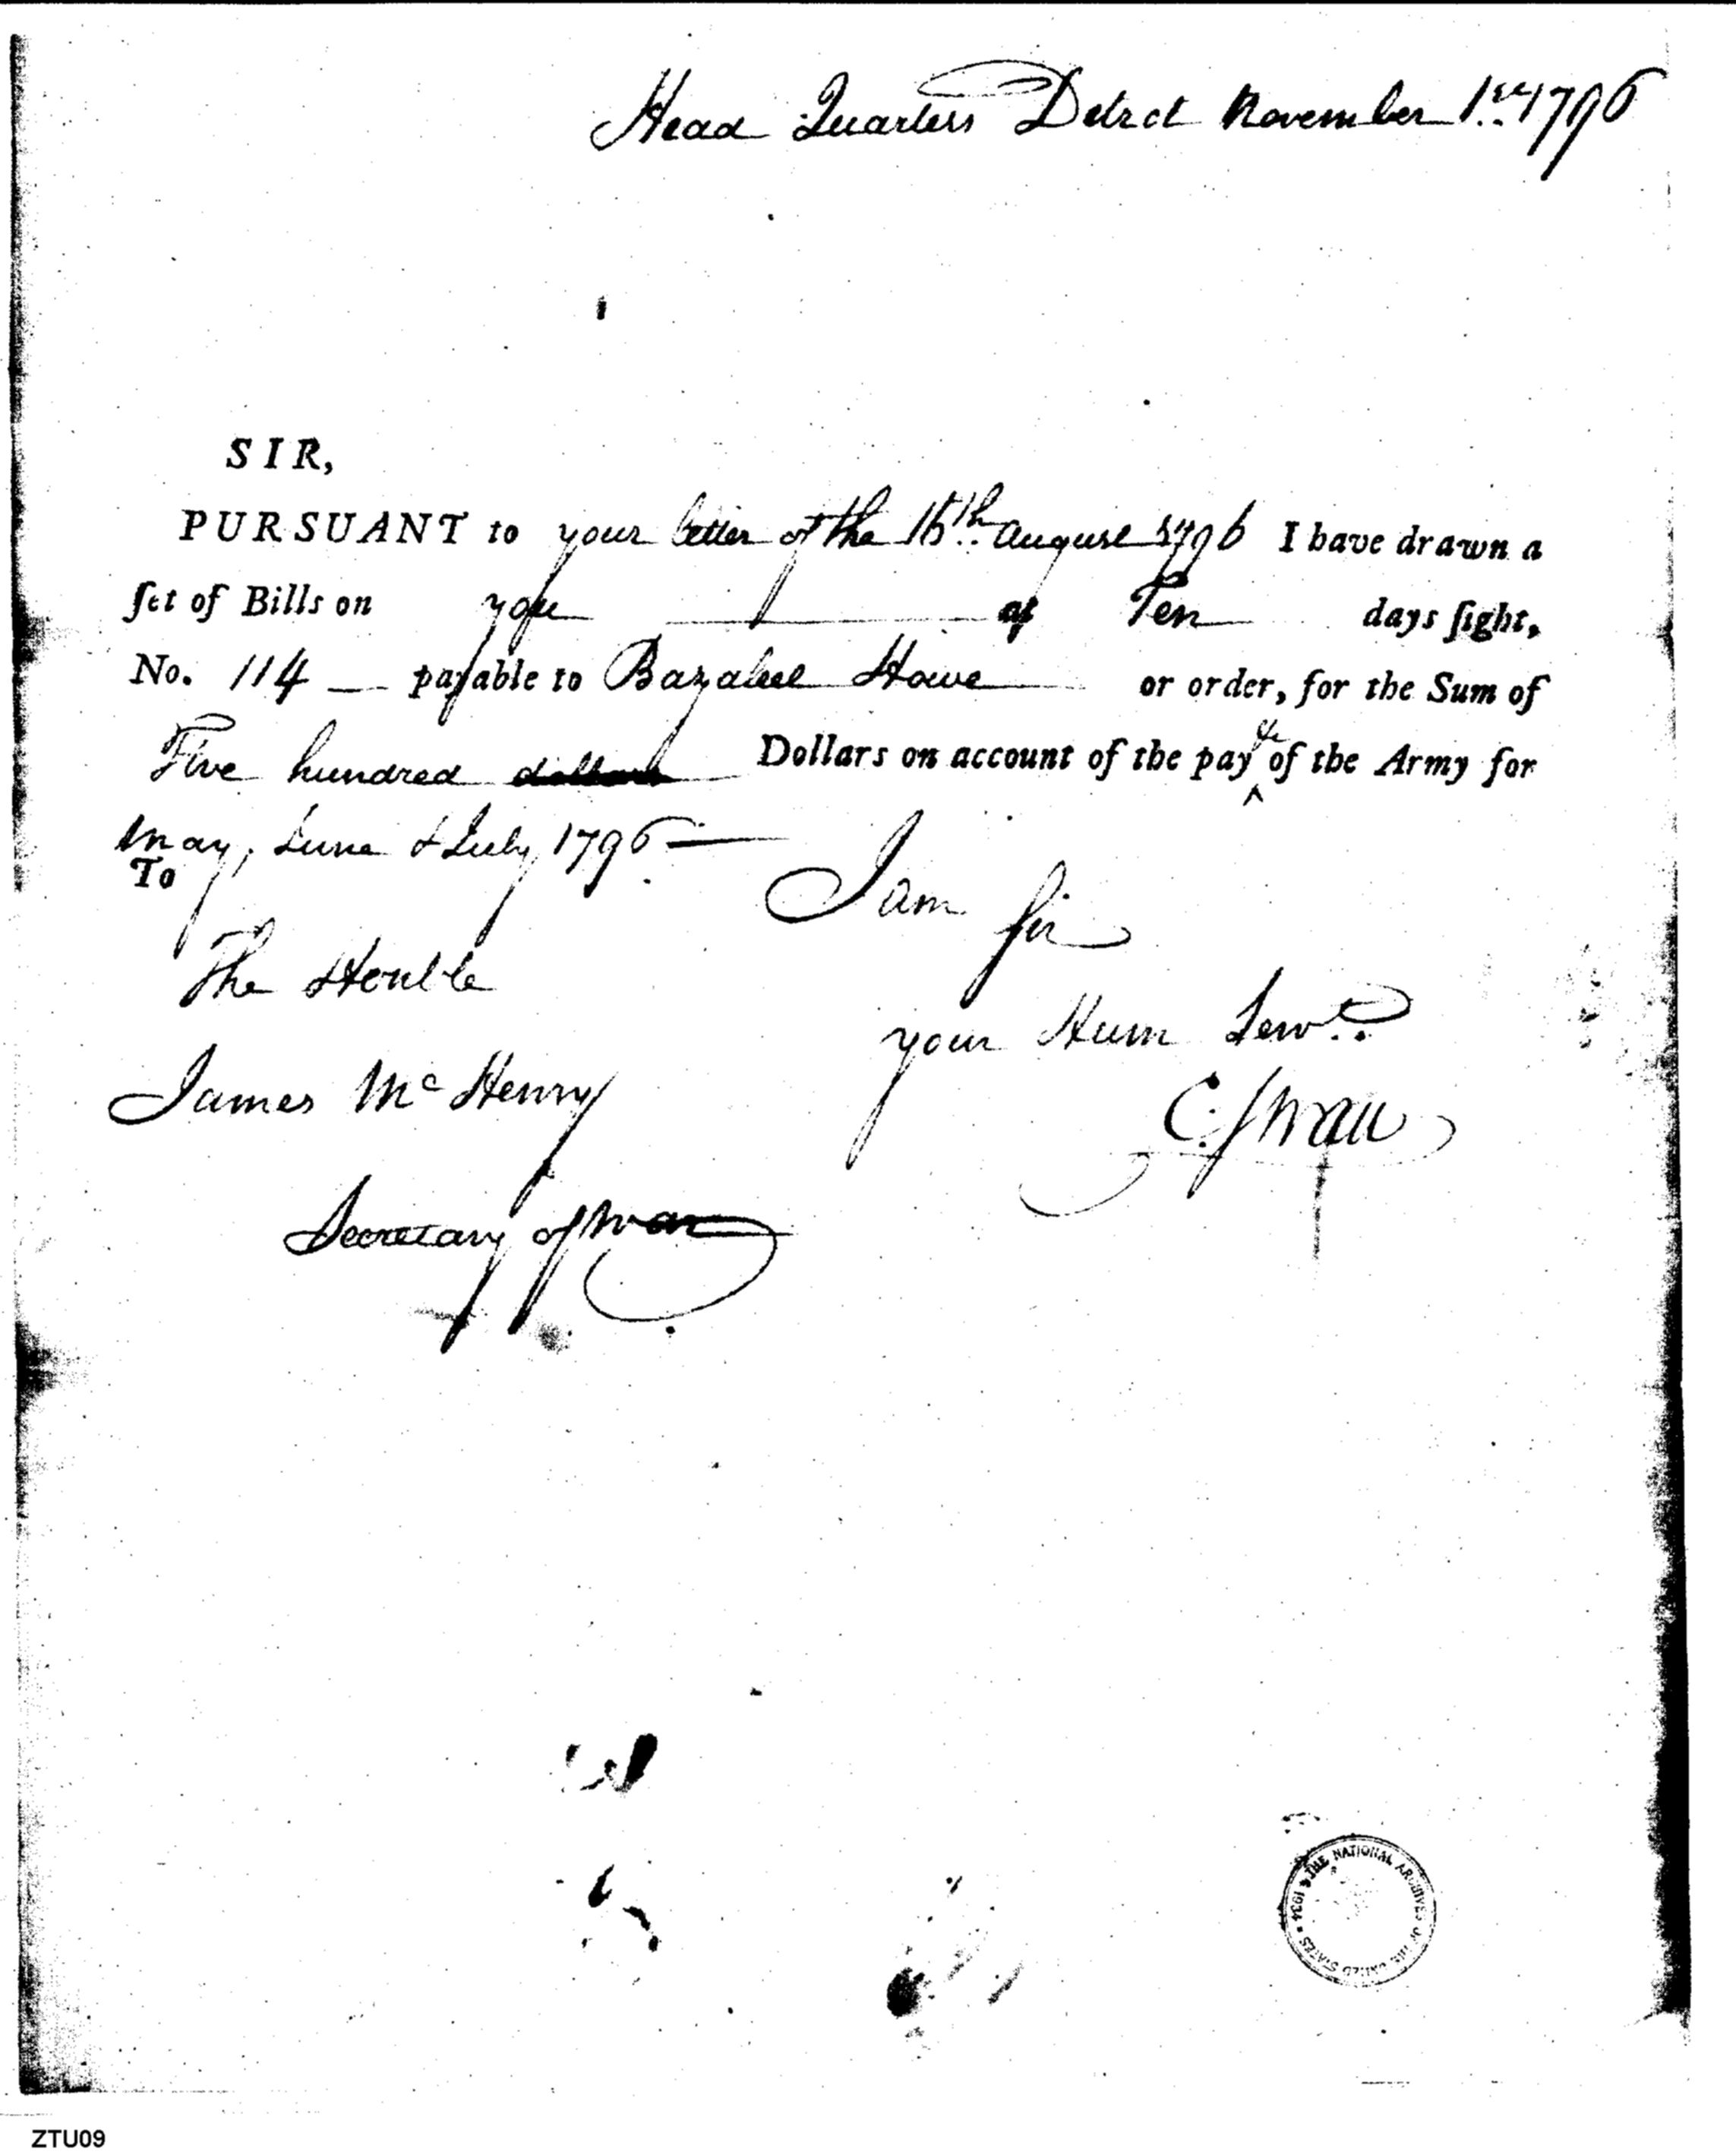 Head Quarters Detrct November 1st 1796
SIR,
PURSUANT to your letter of the 16th august 1796 I have drawn a
ſet of Bills on you at Ten days ſight,
No. 114 payable to Bazaleel Howe or order, for the Sum of
Five hundred dollars Dollars on account of the pay &c of the Army for
may, June & July 1796
To
I am Sir
The Honble
your Hum Servt
James McHenry
C. Swan
Secretary of War
THE NATIONAL ARCHIVES OF THE UNITED STATES 1934
ZTU09